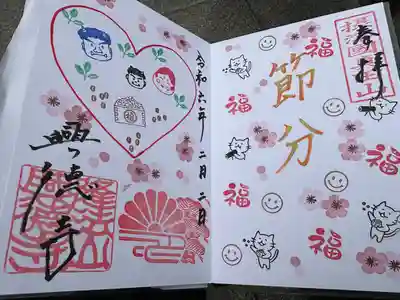 奉拝
節分
福
福
福
福
福
福
令和六年二月二日
興徳寺